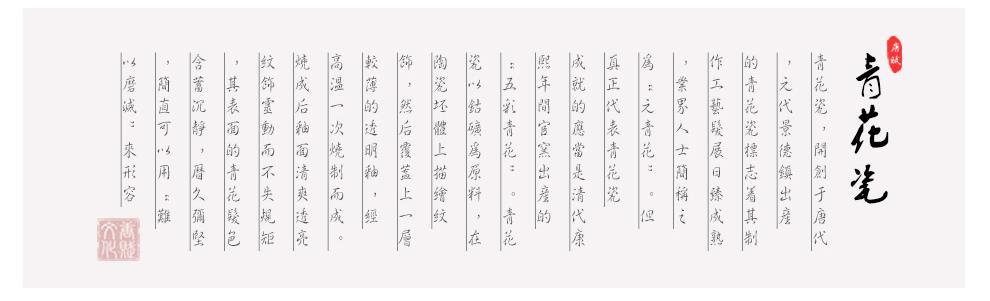 青花瓷
唐賦
青花瓷，開創于唐代
，元代景德鎮出産
的青花瓷標志着其制
作工藝髮展日臻成熟
，業界人士簡稱之
爲：元青花：。但
真正代表青花瓷
成就的應當是清代康
熙年間官窯出産的
：五彩青花：。青花
瓷以鈷礦爲原料，在
陶瓷坯體上描繪紋
飾，然后覆蓋上一層
較薄的透明釉，經
高溫一次燒制而成。
燒成后釉面清爽透亮
紋飾靈動而不失規矩
，其表面的青花髮色
含蓄沉静，曆久彌堅
，簡直可以用：難
以磨滅：來形容